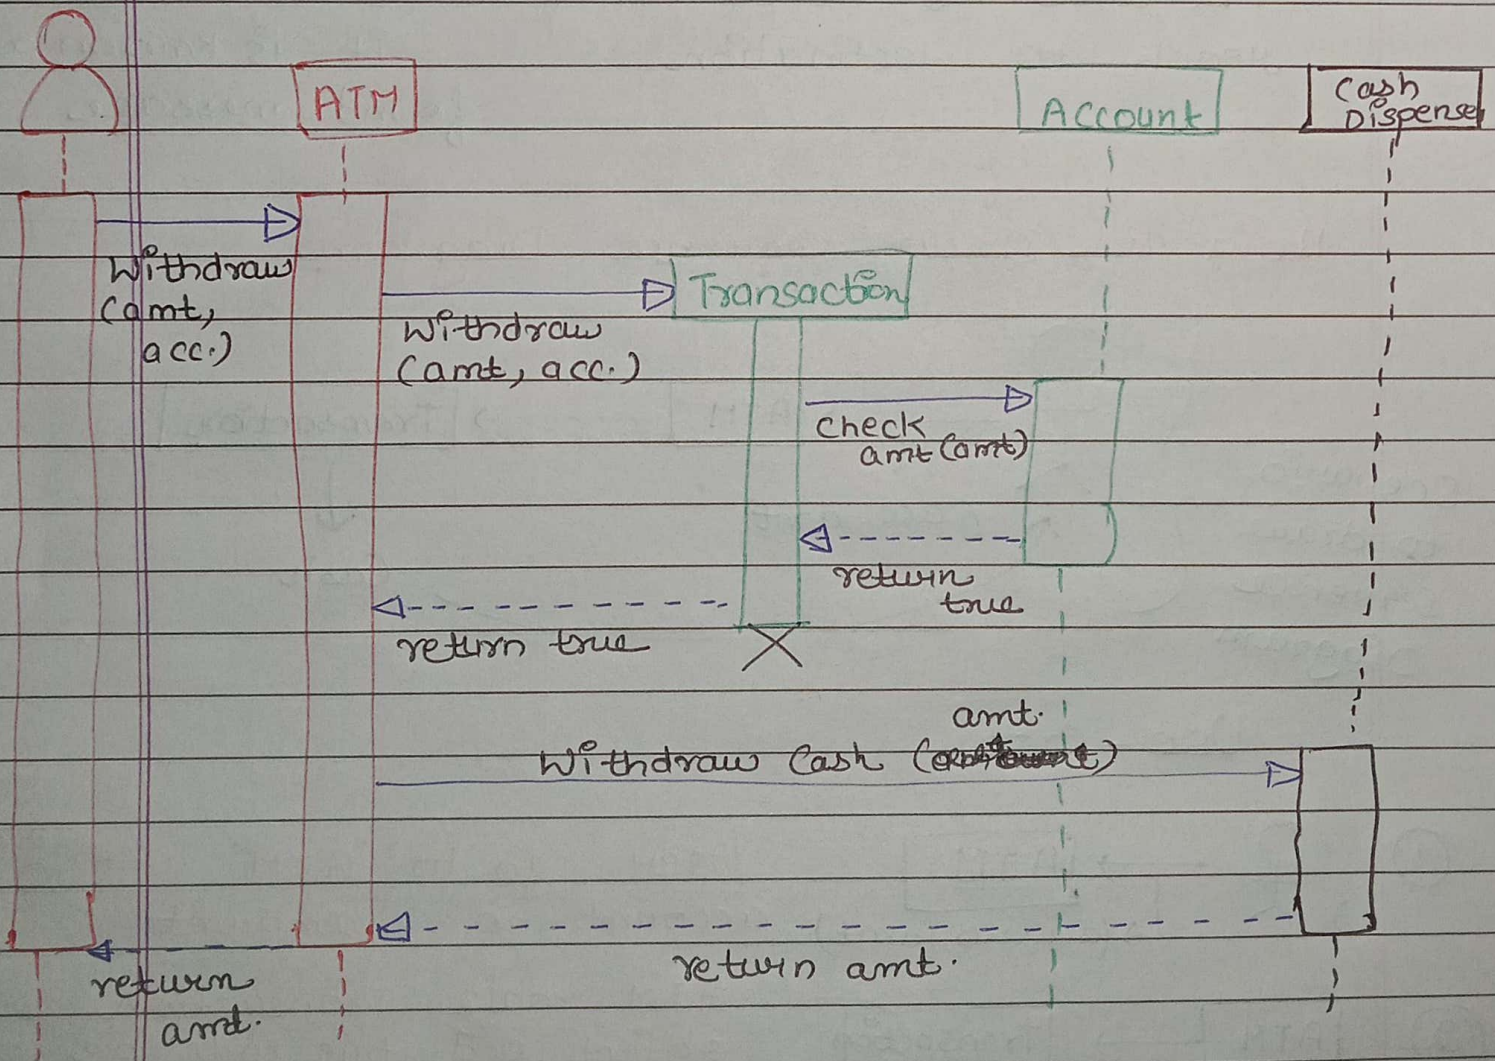 ATM
Account
Cash
Dispense
Withdraw
(amt,
acc.)
Transaction
Withdraw
(amt, acc.)
check
amt (amt)
return
true
return true
amt.
Withdraw Cash (
)
return amt.
return
amt.